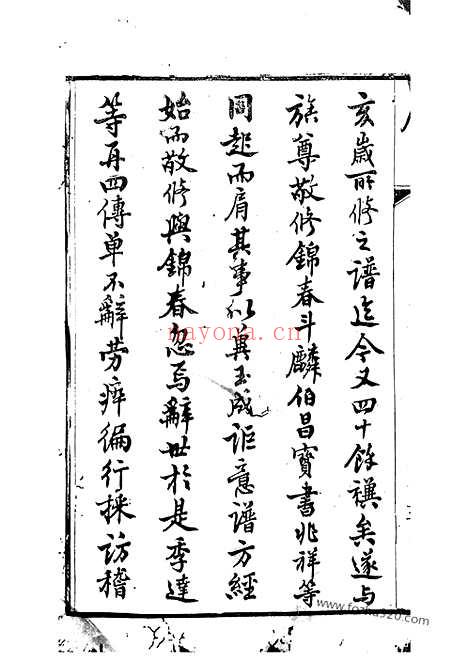 亥歲所修之譜迄今又四十餘禩矣遂与
族尊敬修錦春斗麟伯昌寶書兆祥等
同起而肩其事以冀玉成詎意譜方經
始而敬修與錦春忽焉辭世於是季達
等再四傳單不辭劳瘁徧行採訪稽
nayona.cn